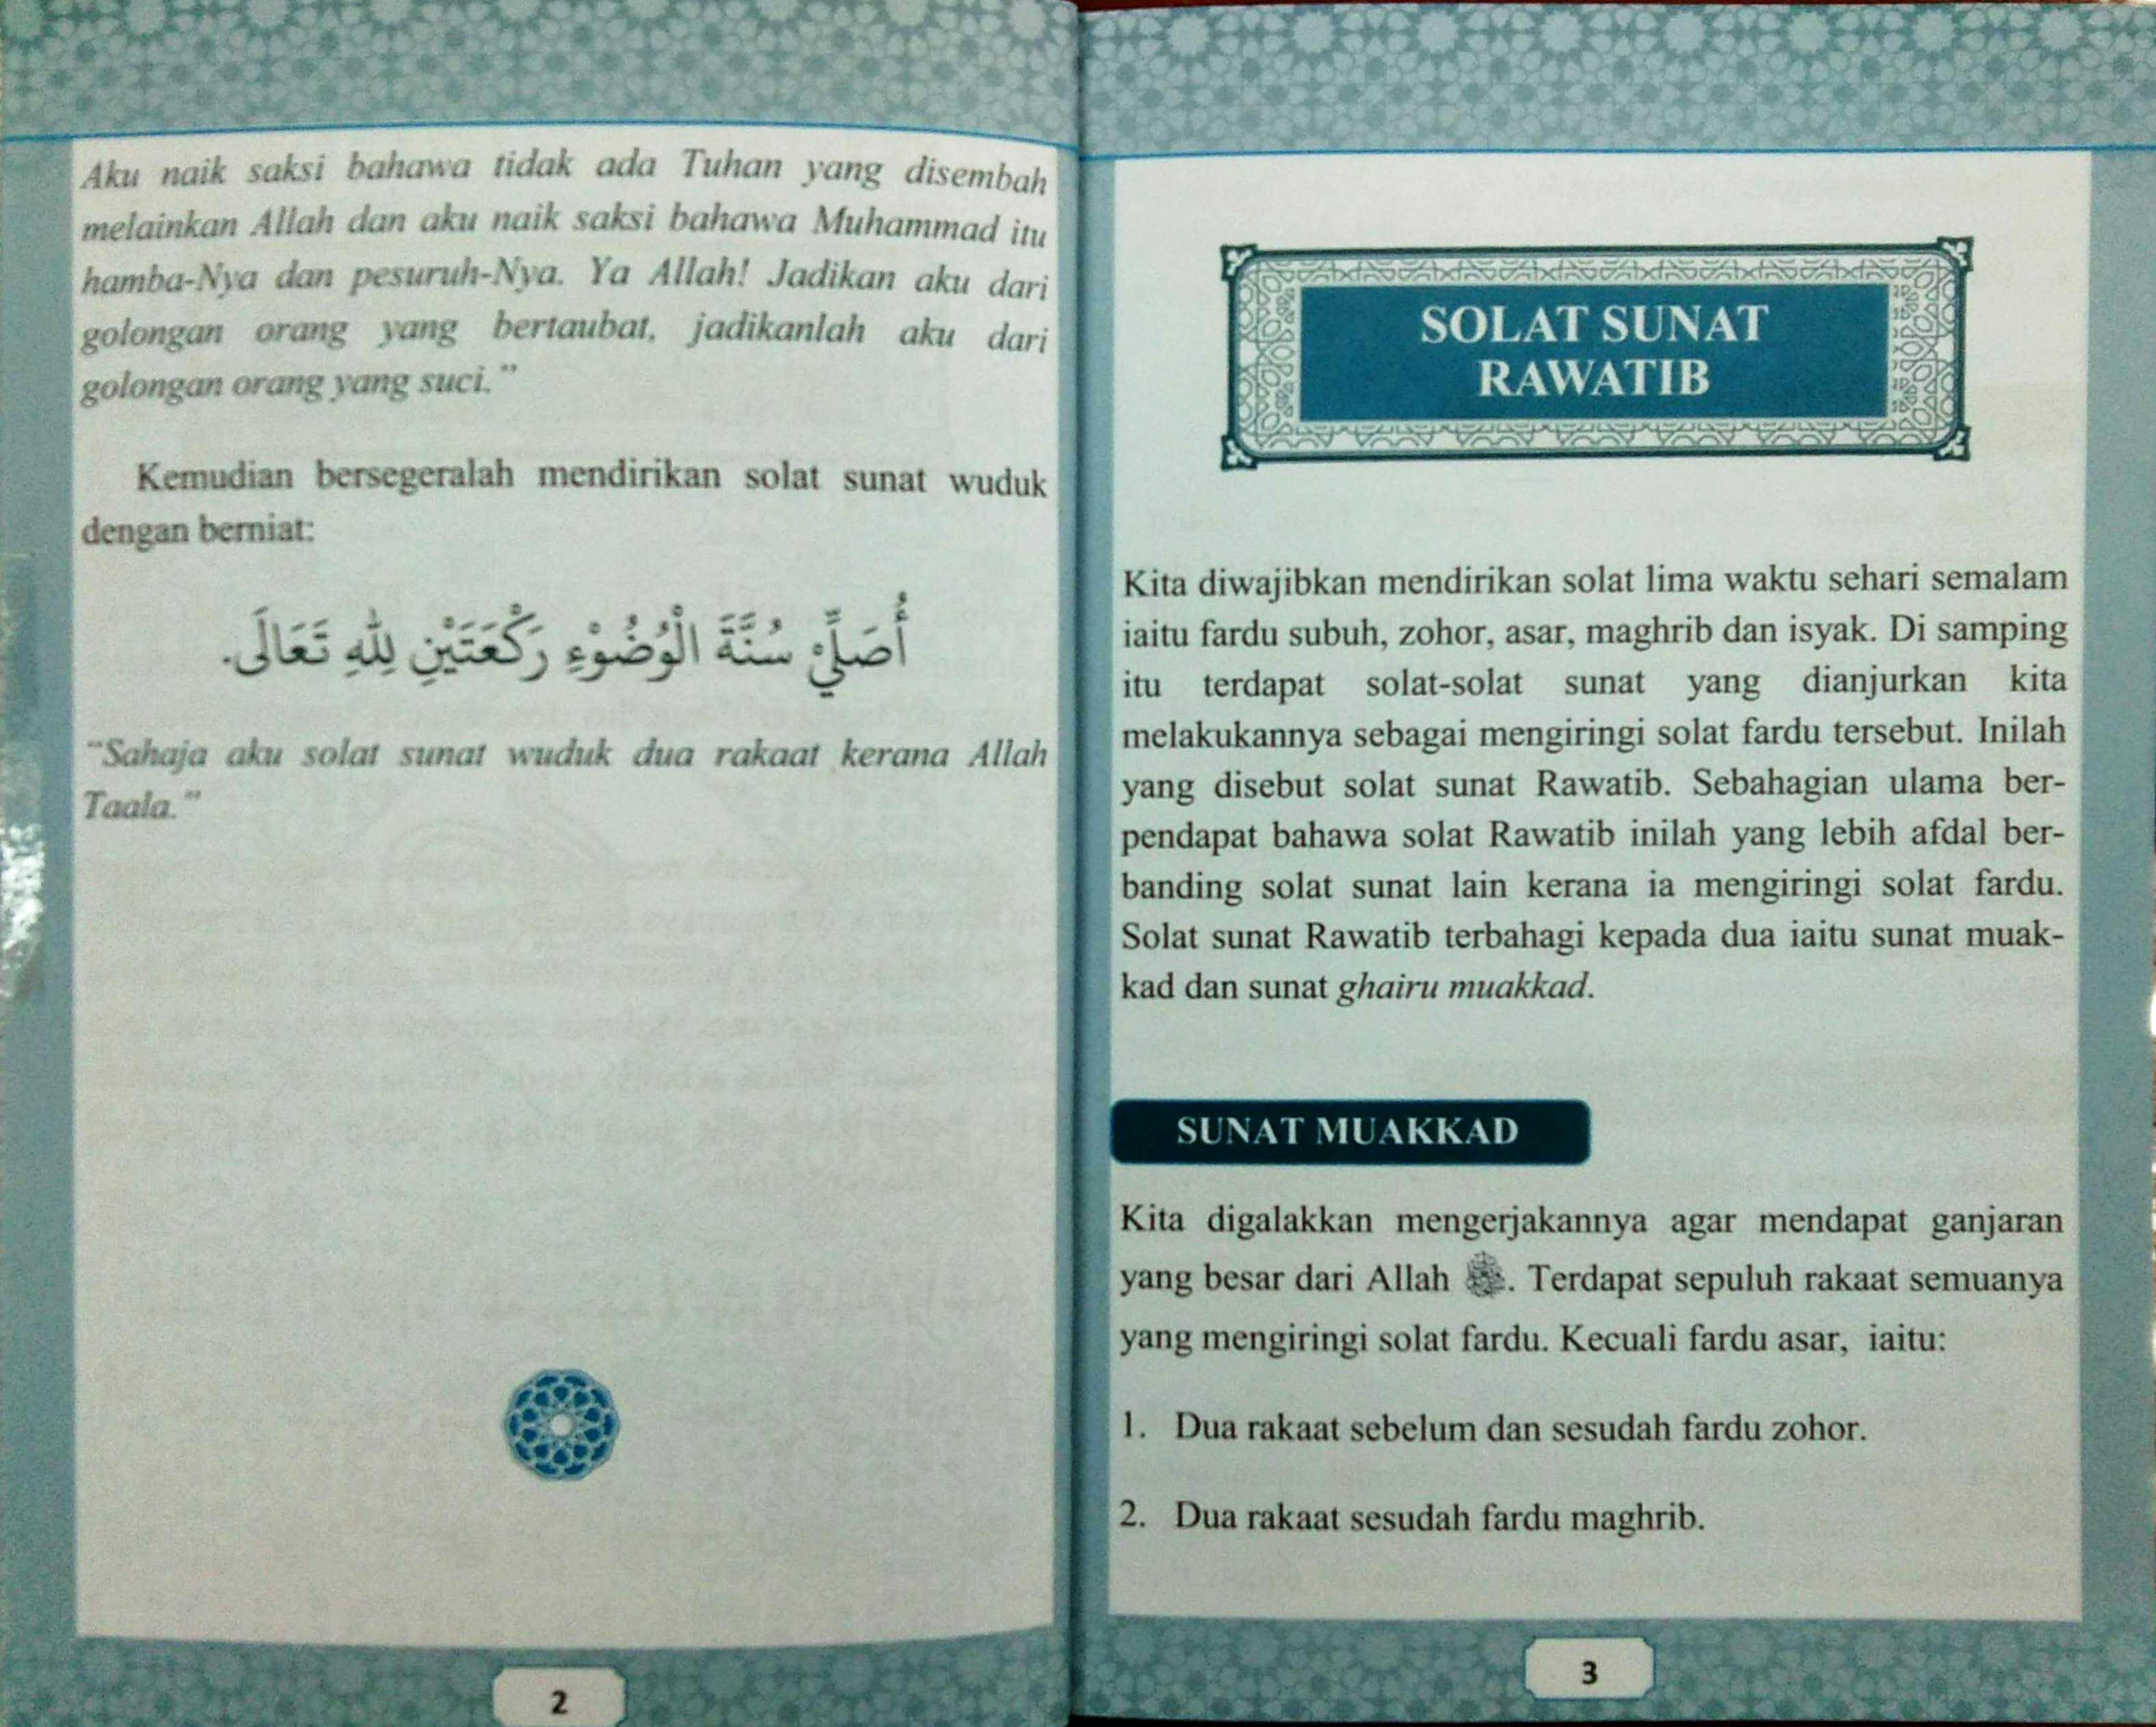 Aku naik saksi bahawa tidak ada Tuhan yang disembah
melainkan Allah dan aku naik saksi bahawa Muhammad itu
hamba-Nya dan pesuruh-Nya. Ya Allah! Jadikan aku dari
golongan orang yang bertaubat, jadikanlah aku dari
golongan orang yang suci.”
Kemudian bersegeralah mendirikan solat sunat wuduk
dengan berniat:
أُصَلِّيْ سُنَّةَ الْوُضُوْءِ رَكْعَتَيْنِ لِلّٰهِ تَعَالَى.
“Sahaja aku solat sunat wuduk dua rakaat kerana Allah
Taala.”
2
SOLAT SUNAT
RAWATIB
Kita diwajibkan mendirikan solat lima waktu sehari semalam
iaitu fardu subuh, zohor, asar, maghrib dan isyak. Di samping
itu terdapat solat-solat sunat yang dianjurkan kita
melakukannya sebagai mengiringi solat fardu tersebut. Inilah
yang disebut solat sunat Rawatib. Sebahagian ulama ber-
pendapat bahawa solat Rawatib inilah yang lebih afdal ber-
banding solat sunat lain kerana ia mengiringi solat fardu.
Solat sunat Rawatib terbahagi kepada dua iaitu sunat muak-
kad dan sunat ghairu muakkad.
SUNAT MUAKKAD
Kita digalakkan mengerjakannya agar mendapat ganjaran
yang besar dari Allah . Terdapat sepuluh rakaat semuanya
yang mengiringi solat fardu. Kecuali fardu asar, iaitu:
1. Dua rakaat sebelum dan sesudah fardu zohor.
2. Dua rakaat sesudah fardu maghrib.
3